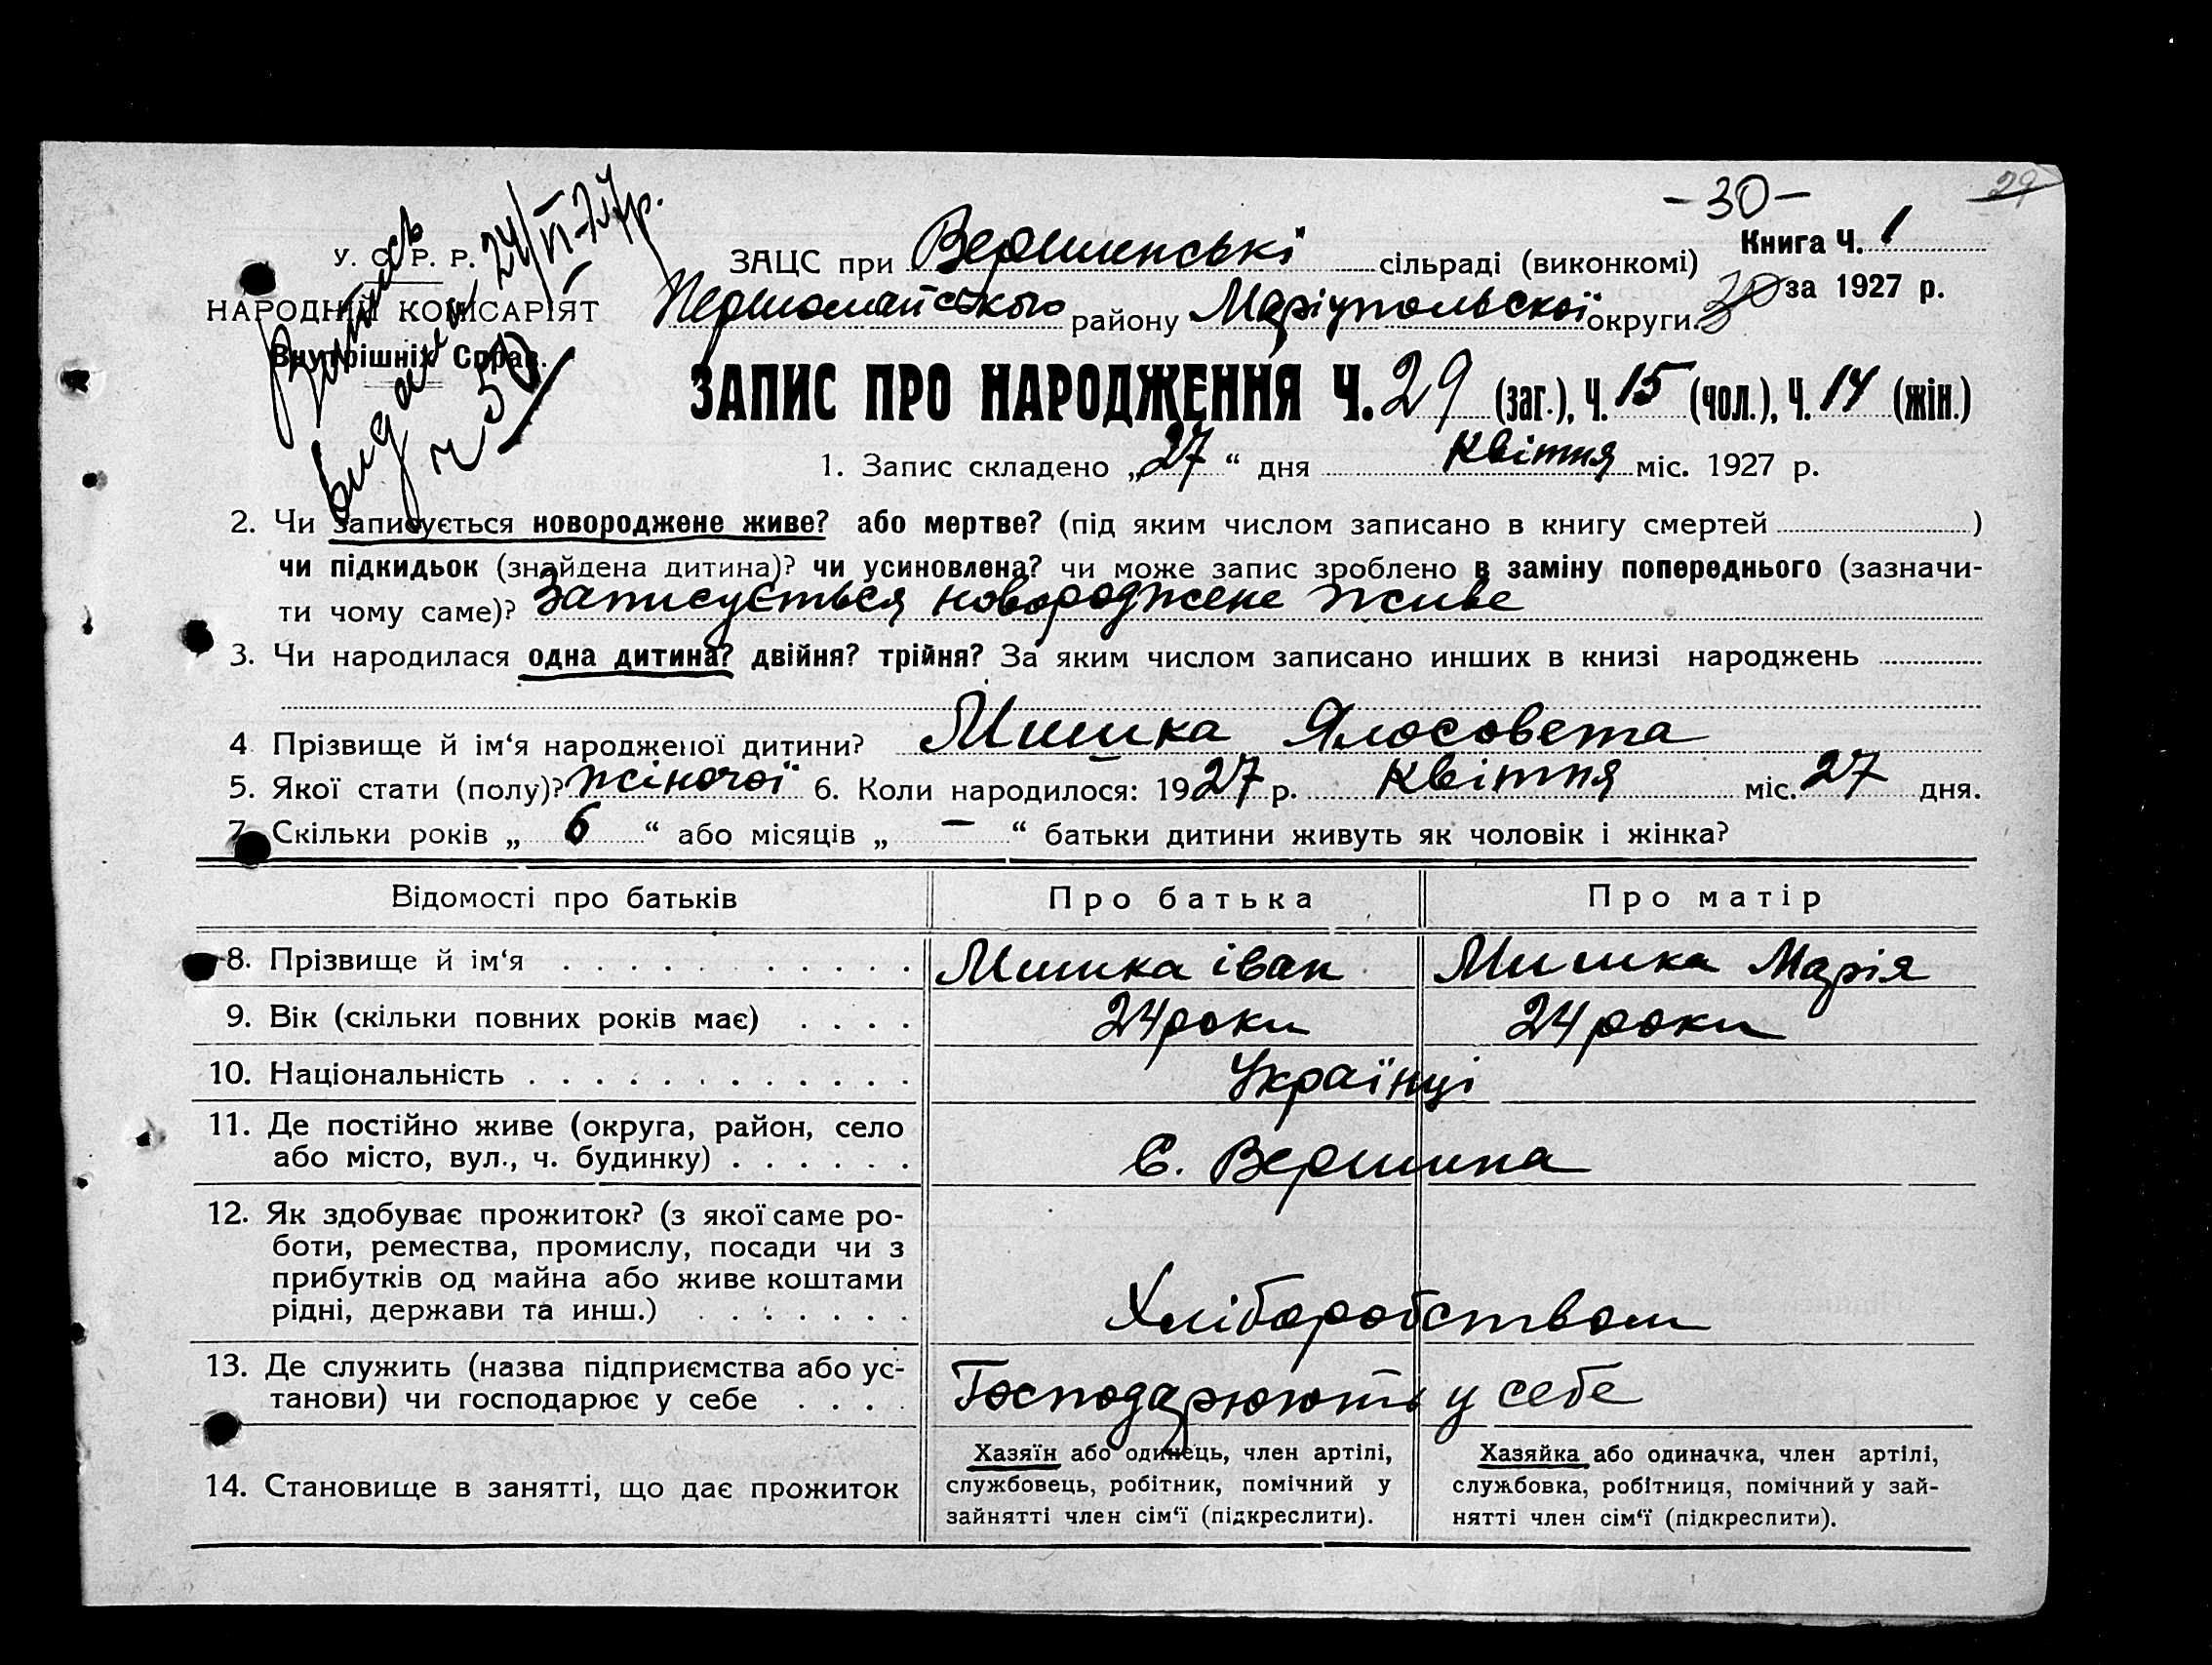 -30-
29
У. С. Р. Р.
НАРОДНІЙ КОМІСАРІЯТ
Внутрішніх Справ.
Витись
видани 24/VI-27р.
ч 50
ЗАЦС при Вершинські сільраді (виконкомі)
Книга Ч. 1
Першомайського району Маріупольскої округи.
30 за 1927 р.
ЗАПИС ПРО НАРОДЖЕННЯ Ч. 29 (заг.), Ч. 15 (чол.), Ч. 14 (жін.)
1. Запис складено „27“ дня Квітня міс. 1927 р.
2. Чи записується новороджене живе? або мертве? (під яким числом записано в книгу смертей )
чи підкидьок (знайдена дитина)? чи усиновлена? чи може запис зроблено в заміну попереднього (зазначи-
ти чому саме)? Записується новороджене живе
3. Чи народилася одна дитина? двійня? трійня? За яким числом записано инших в книзі народжень
4 Прізвище й ім‘я народженої дитини? Мишка Ялосовета
5. Якої стати (полу)? жіночої 6. Коли народилося: 1927 р. Квітня міс. 27 дня.
7. Скільки років „ 6 “ або місяців „ — “ батьки дитини живуть як чоловік і жінка?
Відомості про батьків Про батька Про матір
8. Прізвище й ім‘я Мишка іван Мишка Марія
9. Вік (скільки повних років має) 24 роки 24 роки
10. Національність Українці
11. Де постійно живе (округа, район, село
або місто, вул., ч. будинку) С. Вершина
12. Як здобуває прожиток? (з якої саме ро-
боти, ремества, промислу, посади чи з
прибутків од майна або живе коштами
рідні, держави та инш.) Хліборобством
13. Де служить (назва підприємства або ус-
танови) чи господарює у себе Господарюють у себе
14. Становище в занятті, що дає прожиток
Хазяїн або одинець, член артілі,
службовець, робітник, помічний у
зайнятті член сім‘ї (підкреслити).
Хазяйка або одиначка, член артілі,
службовка, робітниця, помічний у зай-
нятті член сім‘ї (підкреслити).